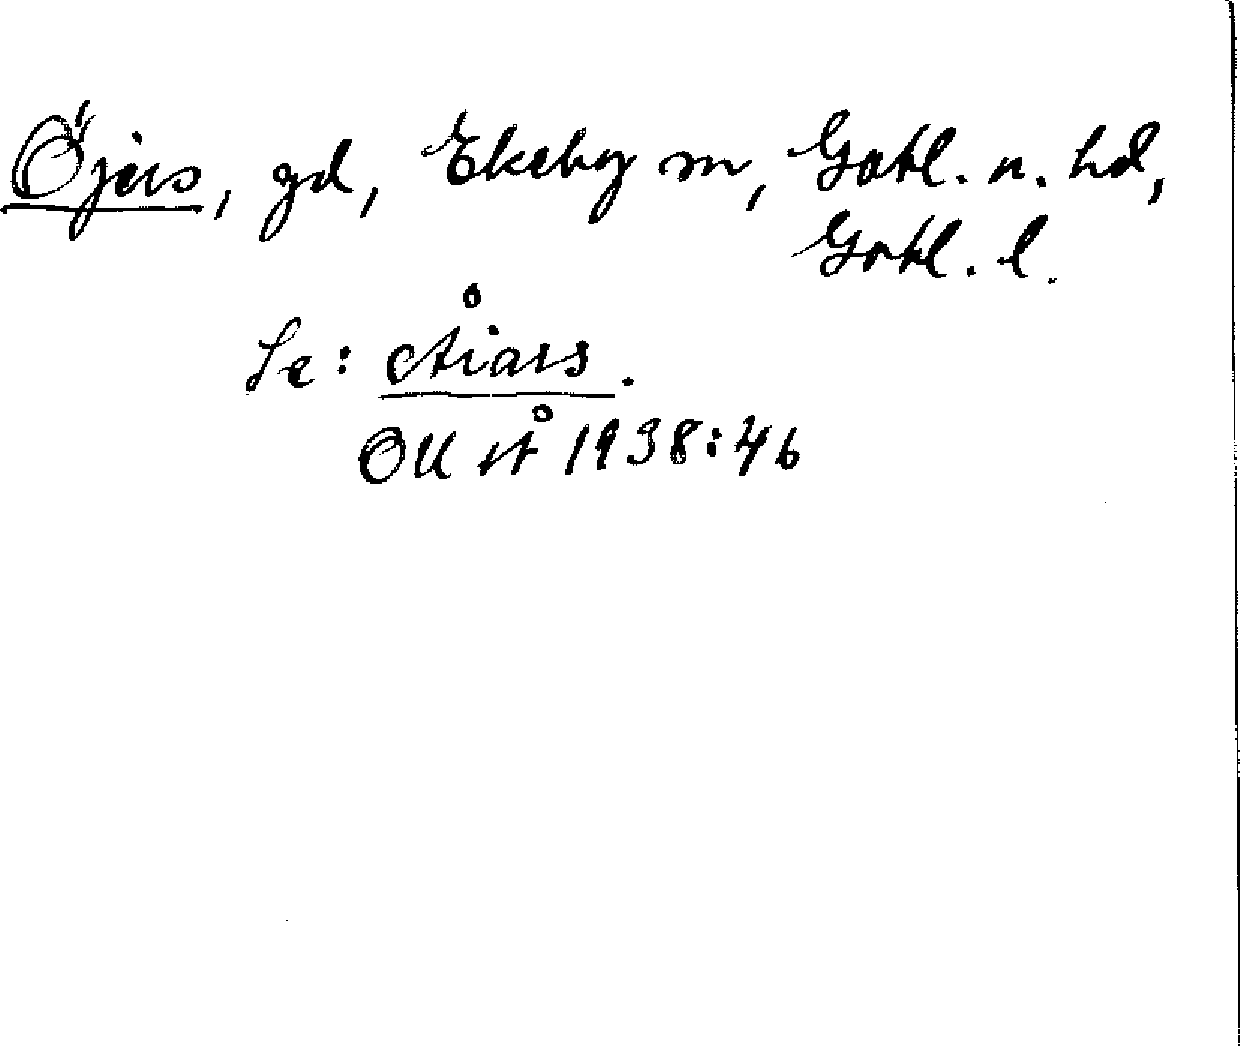 Öjers, gd, Ekeby sn, Gotl. n. hd,
Gotl. l.
Se: Åiars.
OU Å 1938:46